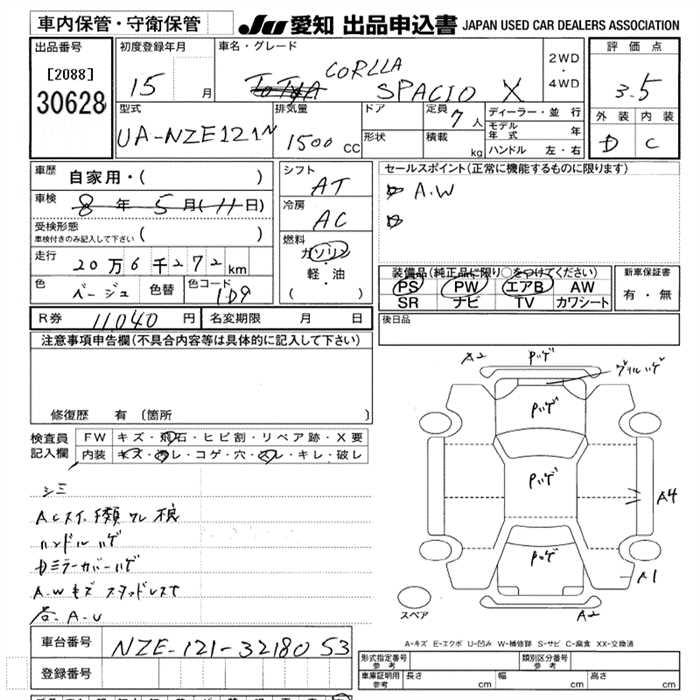 車内保管・守衛保管
JU 愛知 出品申込書 JAPAN USED CAR DEALERS ASSOCIATION
出品番号
[2088]
30628
初度登録年月
15 月
車名・グレード
TOYOTA CORLLA SPACIO X
2WD
・
4WD
評価点
3.5
外装 内装
D C
型式
UA-NZE121N
排気量
1500 CC
ドア
形状
定員 7 人
積載 kg
ディーラー・並行
モデル年式 年
ハンドル 左・右
車歴 自家用・( )
車検 8年 5月(11日)
受検形態
車検付きのみ記入して下さい ( )
走行 20万6千272km
色 ベージュ 色替 色コード 1D9
シフト AT
冷房 AC
燃料 ガソリン
・
軽・油
( )
セールスポイント(正常に機能するものに限ります)
A.W
装備品(純正品に限り○をつけてください)
PS PW エアB AW
SR ナビ TV カワシート
新車保証書
有・無
R券 11040 円 名変期限 月 日
後日品
注意事項申告欄(不具合内容等は具体的に記入して下さい)
修復歴 有 (箇所 )
検査員記入欄
FW キズ・飛石・ヒビ割・リペア跡・X要
内装 キズ・汚レ・コゲ・穴・スレ・キレ・破レ
シミ
ハンドル ハゲ
Dミラーカバーハゲ
A.W キズ スタッドレス
A2 Pハゲ
グリルハゲ
Pハゲ
Pハゲ
A4
Pハゲ
A1
A2
スペア
A-キズ E-エクボ U-凹み W-補修跡 S-サビ C-腐食 XX-交換済
車台番号 NZE-121-3218053
登録番号
形式指定番号 参考
類別区分番号 参考
車庫証明用 参考 長さ cm 幅 cm 高さ cm